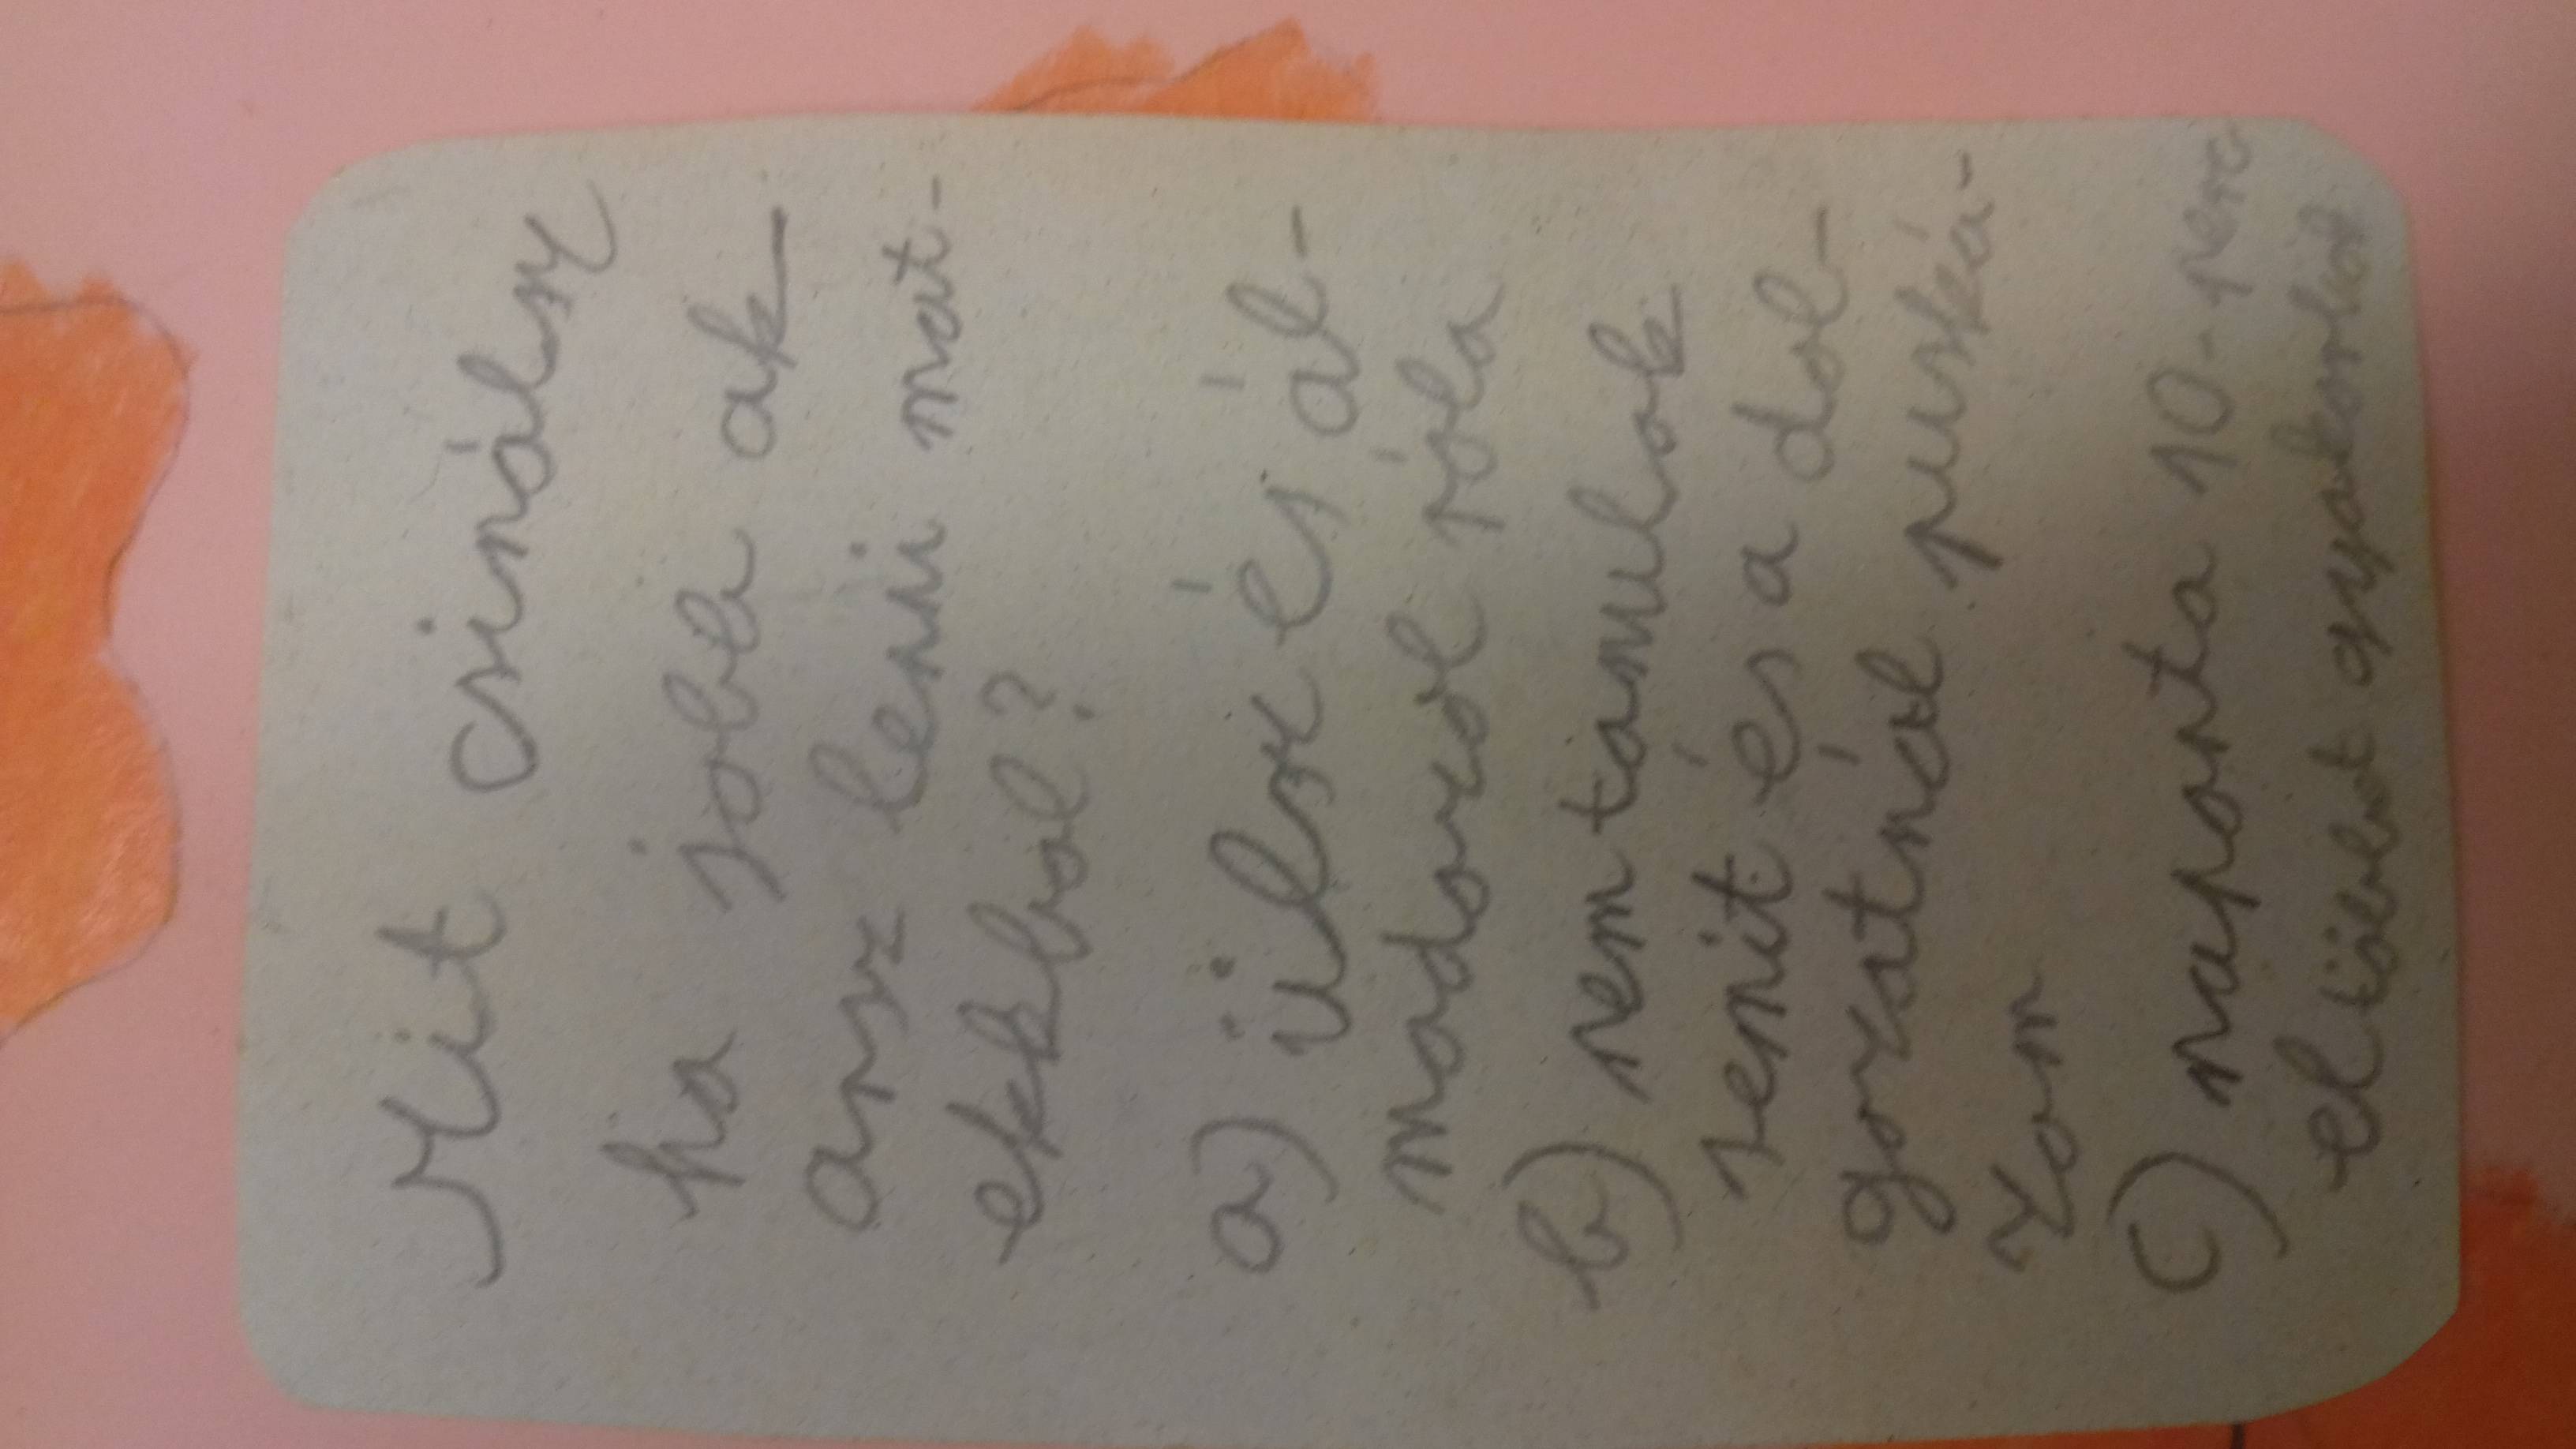 Mit csinálsz
ha jobb ak-
arsz lenni mat-
ekból?
a) ülsz és ál-
madozol róla
b) nem tanulok
semit és a dol-
gozatnál puská-
zom
c) naponta 10-perc
el többet gyakorlod